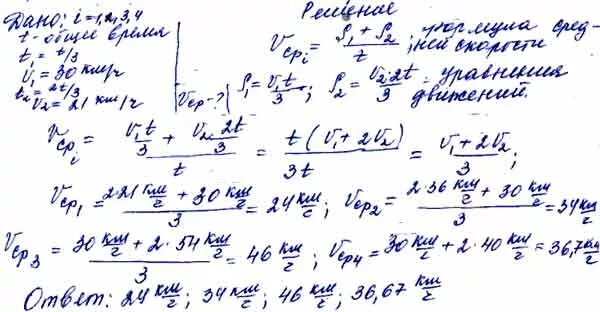 Дано: i=1,2,3,4
t - общее время
t₁ = t/3
V₁ = 30 км/ч
t₂ = 2t/3
V₂ = 21 км/ч
Vср - ?
Решение
Vсрᵢ = (S₁ + S₂)/t ; формула средней скорости
S₁ = V₁t/3 ; S₂ = V₂·2t/3 - уравнения движений.
Vсрᵢ = (V₁t/3 + V₂·2t/3)/t = t(V₁ + 2V₂)/3t = (V₁ + 2V₂)/3 ;
Vср₁ = (2·21 км/ч + 30 км/ч)/3 = 24 км/ч ; Vср₂ = (2·36 км/ч + 30 км/ч)/3 = 34 км/ч
Vср₃ = (30 км/ч + 2·54 км/ч)/3 = 46 км/ч ; Vср₄ = 30 км/ч + 2·40 км/ч = 36,7 км/ч
Ответ: 24 км/ч ; 34 км/ч ; 46 км/ч ; 36,67 км/ч